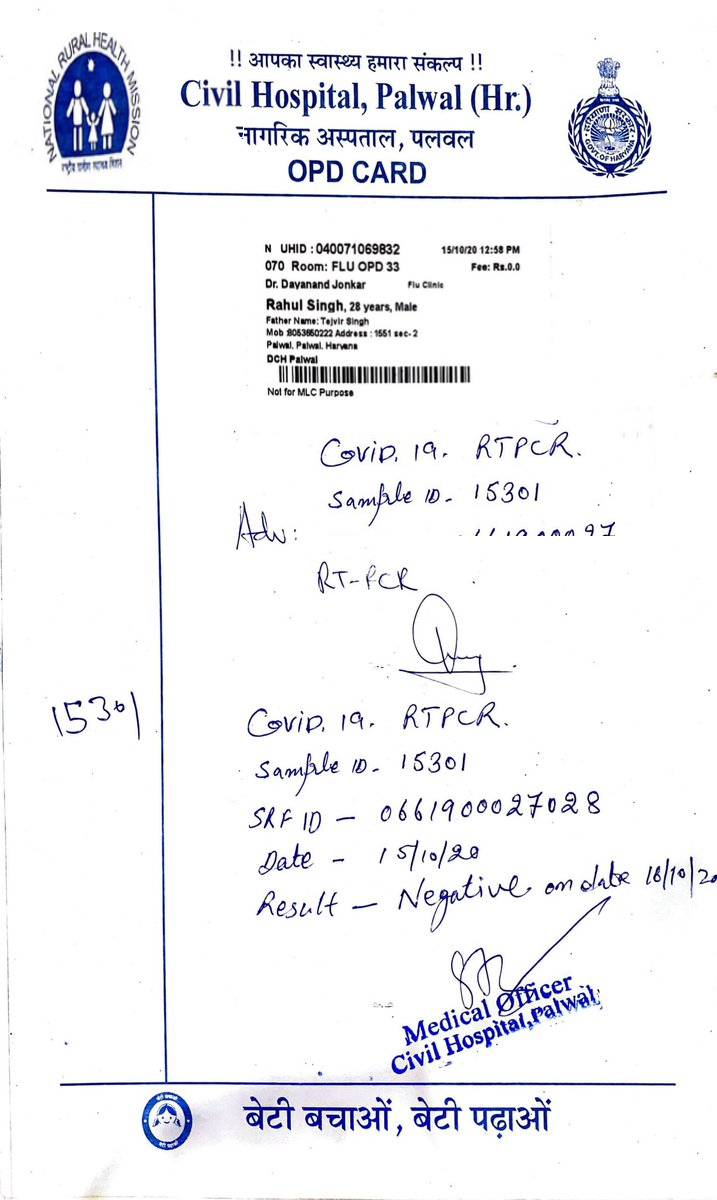 NATIONAL RURAL HEALTH MISSION
राष्ट्रीय ग्रामीण स्वास्थ्य मिशन
!! आपका स्वास्थ्य हमारा संकल्प !!
Civil Hospital, Palwal (Hr.)
नागरिक अस्पताल, पलवल
OPD CARD
हरियाणा सरकार
GOVT. OF HARYANA
N UHID : 040071069832 15/10/20 12:58 PM
070 Room: FLU OPD 33 Fee: Rs.0.0
Dr. Dayanand Jonkar Flu Clinic
Rahul Singh, 28 years, Male
Father Name: Tejvir Singh
Mob :8053650222 Address : 1551 sec-2
Palwal, Palwal, Haryana
DCH Palwal
Not for MLC Purpose
Covid. 19. RTPCR.
Sample ID- 15301
Adv:
RT-PCR
15301
Covid. 19. RTPCR.
Sample ID- 15301
SRF ID - 0661900027028
Date - 15/10/20
Result - Negative on date 18/10/20
Medical Officer
Civil Hospital,Palwal
बेटी बचाओ
बेटी पढ़ाओ
बेटी बचाओं, बेटी पढ़ाओं